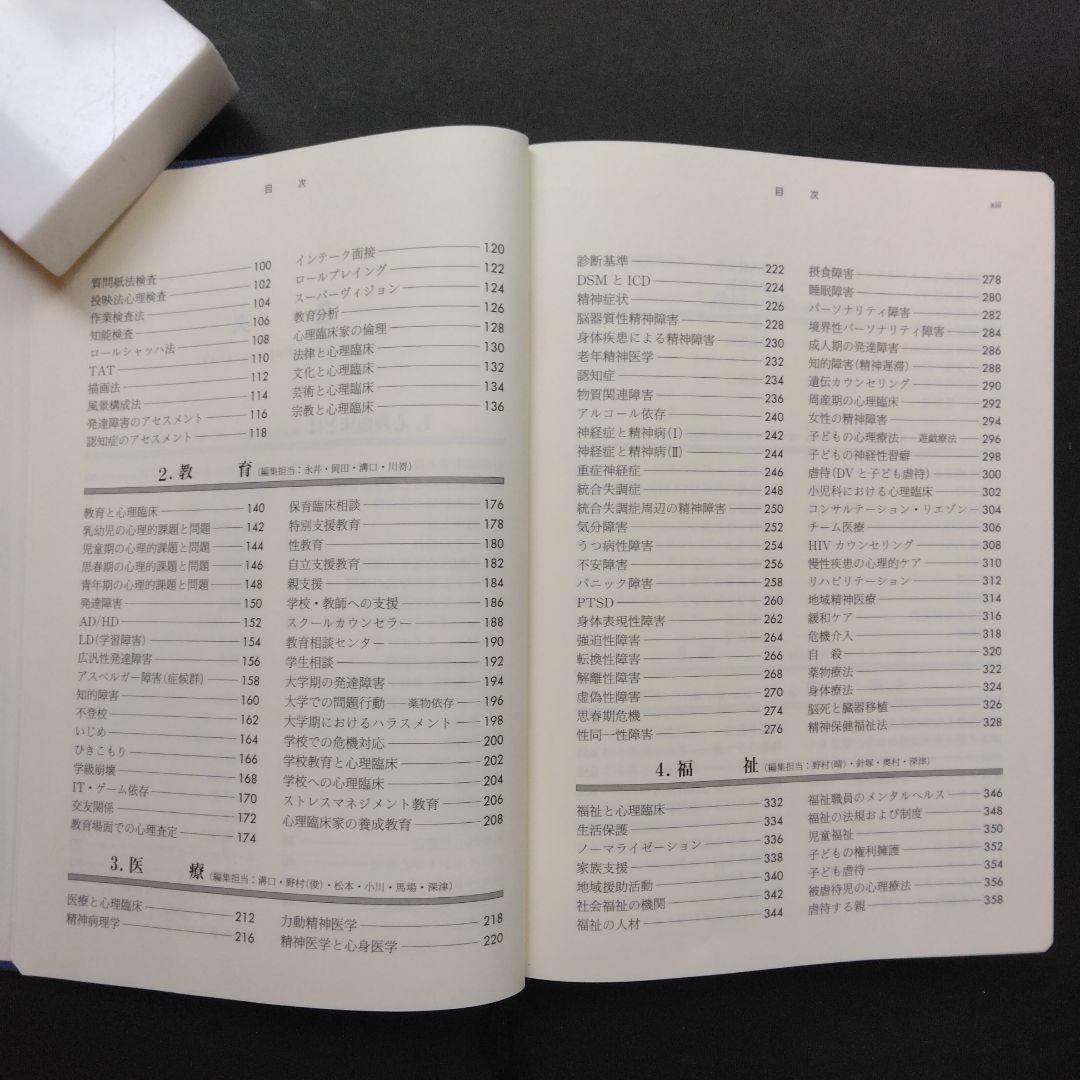 目 次
質問紙法検査 100
投映法心理検査 102
作業検査法 104
知能検査 106
ロールシャッハ法 108
TAT 110
描画法 112
風景構成法 114
発達障害のアセスメント 116
認知症のアセスメント 118
インテーク面接 120
ロールプレイング 122
スーパーヴィジョン 124
教育分析 126
心理臨床家の倫理 128
法律と心理臨床 130
文化と心理臨床 132
芸術と心理臨床 134
宗教と心理臨床 136
2.教 育 (編集担当:永井・岡田・溝口・川嵜)
教育と心理臨床 140
乳幼児の心理的課題と問題 142
児童期の心理的課題と問題 144
思春期の心理的課題と問題 146
青年期の心理的課題と問題 148
発達障害 150
AD/HD 152
LD(学習障害) 154
広汎性発達障害 156
アスペルガー障害(症候群) 158
知的障害 160
不登校 162
いじめ 164
ひきこもり 166
学級崩壊 168
IT・ゲーム依存 170
交友関係 172
教育場面での心理査定 174
保育臨床相談 176
特別支援教育 178
性教育 180
自立支援教育 182
親支援 184
学校・教師への支援 186
スクールカウンセラー 188
教育相談センター 190
学生相談 192
大学期の発達障害 194
大学での問題行動——薬物依存 196
大学期におけるハラスメント 198
学校での危機対応 200
学校教育と心理臨床 202
学校への心理臨床 204
ストレスマネジメント教育 206
心理臨床家の養成教育 208
3.医 療 (編集担当:溝口・野村(俊)・松本・小川・馬場・深津)
医療と心理臨床 212
精神病理学 216
力動精神医学 218
精神医学と心身医学 220
目 次
xiii
診断基準 222
DSM と ICD 224
精神症状 226
脳器質性精神障害 228
身体疾患による精神障害 230
老年精神医学 232
認知症 234
物質関連障害 236
アルコール依存 240
神経症と精神病(Ⅰ) 242
神経症と精神病(Ⅱ) 244
重症神経症 246
統合失調症 248
統合失調症周辺の精神障害 250
気分障害 252
うつ病性障害 254
不安障害 256
パニック障害 258
PTSD 260
身体表現性障害 262
強迫性障害 264
転換性障害 266
解離性障害 268
虚偽性障害 270
思春期危機 274
性同一性障害 276
摂食障害 278
睡眠障害 280
パーソナリティ障害 282
境界性パーソナリティ障害 284
成人期の発達障害 286
知的障害(精神遅滞) 288
遺伝カウンセリング 290
周産期の心理臨床 292
女性の精神障害 294
子どもの心理療法——遊戯療法 296
子どもの神経性習癖 298
虐待(DVと子ども虐待) 300
小児科における心理臨床 302
コンサルテーション・リエゾン 304
チーム医療 306
HIV カウンセリング 308
慢性疾患の心理的ケア 310
リハビリテーション 312
地域精神医療 314
緩和ケア 316
危機介入 318
自 殺 320
薬物療法 322
身体療法 324
脳死と臓器移植 326
精神保健福祉法 328
4.福 祉 (編集担当:野村(晴)・針塚・奥村・深津)
福祉と心理臨床 332
生活保護 334
ノーマライゼーション 336
家族支援 338
地域援助活動 340
社会福祉の機関 342
福祉の人材 344
福祉職員のメンタルヘルス 346
福祉の法規および制度 348
児童福祉 350
子どもの権利擁護 352
子ども虐待 354
被虐待児の心理療法 356
虐待する親 358